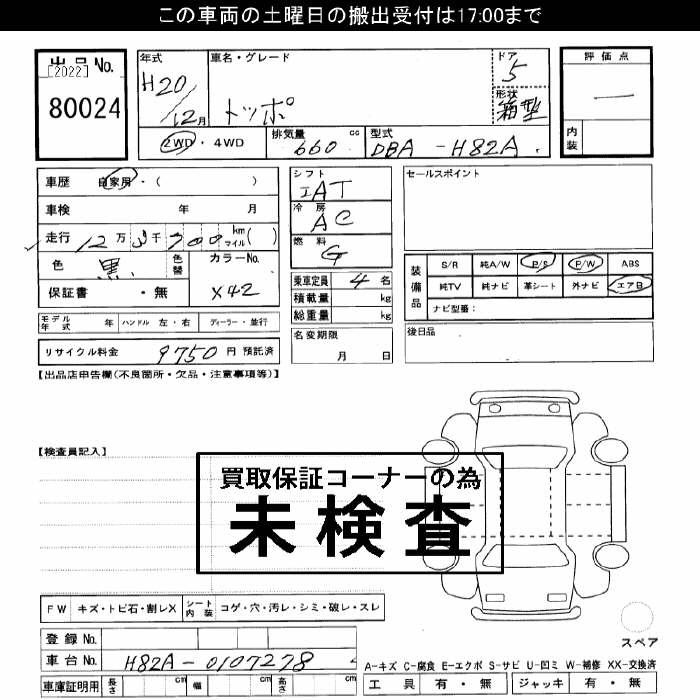 この車両の土曜日の搬出受付は17:00まで
出品No.
[2022]
80024
年式
H20/12月
車名・グレード
トッポ
ドア
5
形状
箱型
評価点
―
内装
2WD ・ 4WD
排気量 660 cc
型式 DBA - H82A
車歴 自家用・( )
車検 年 月
走行 12万3千700 km マイル( )
色 黒 色替
カラーNo.
X42
保証書 ・ 無
シフト
IAT
冷房
AC
燃料
G
乗車定員 4 名
積載量 kg
総重量 kg
名変期限
月 日
セールスポイント
装備品
S/R 純A/W P/S P/W ABS
純TV 純ナビ 革シート 外ナビ エアB
ナビ型番:
後日品
モデル年式 年 ハンドル 左・右 ディーラー・並行
リサイクル料金 9750 円 預託済
【出品店申告欄(不良箇所・欠品・注意事項等)】
【検査員記入】
買取保証コーナーの為
未検査
FW キズ・トビ石・割レX シート内装 コゲ・穴・汚レ・シミ・破レ・スレ
登録No.
車台No. H82A-0107278
車庫証明用 長さ cm 幅 cm 高さ cm
スペア
A-キズ C-腐食 E-エクボ S-サビ U-凹ミ W-補修 XX-交換済
工具 有・無 ジャッキ 有・無